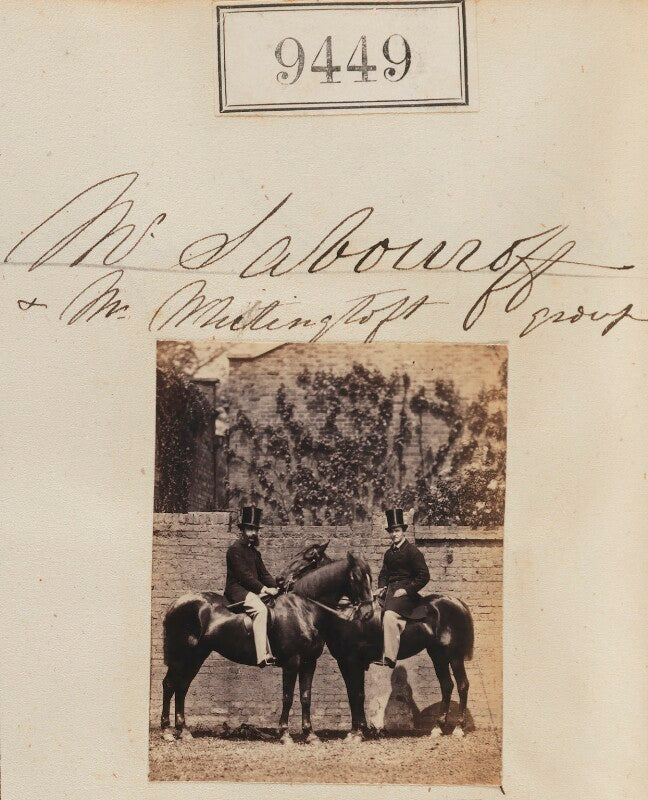 9449
Mr. Sabouroff
& Mr. Mietingtoft group